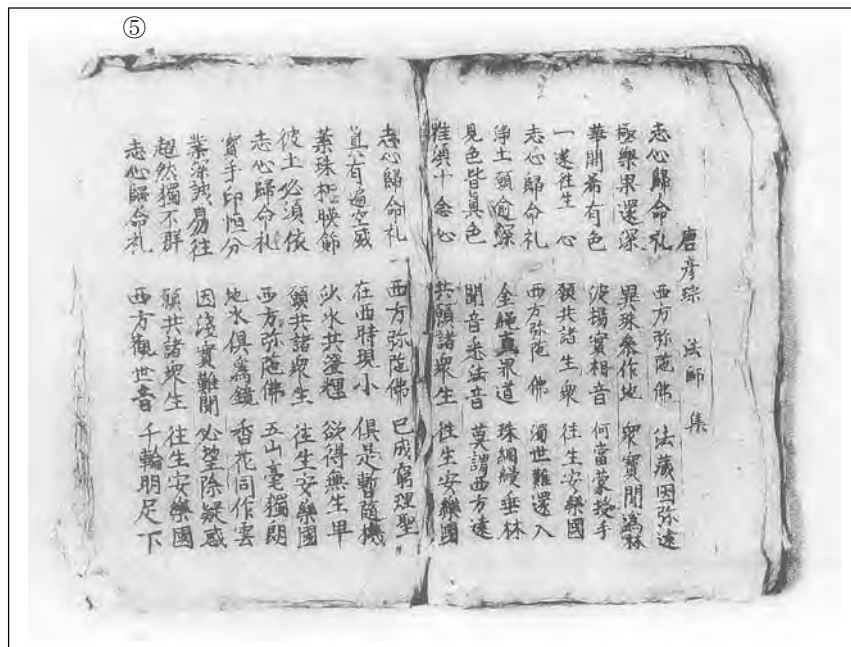 ⑤
唐彥琮 法師 集
志心歸命礼 西方弥陁佛 法藏因弥遠
極樂果還深 異珠參作地 衆寶間為林
華開希有色 波揚實相音 何當蒙授手
一遂往生心 願共諸生衆 往生安樂國
志心歸命礼 西方弥陁佛 濁世難還入
淨土願逾深 金繩真界道 珠網縵垂林
見色皆真色 聞音悉法音 莫謂西方遠
惟須十念心 共願諸衆生 往生安樂國
志心歸命礼 西方弥陁佛 已成窮理聖
真有遍空威 在西時現小 俱是暫隨機
葉珠相暎飾 沙水共澄 欲得無生早
彼土必須依 願共諸衆生 往生安樂國
志心歸命礼 西方弥陁佛 五山毫獨朗
寶手印恒分 地水俱爲鏡 香花同作雲
業深誠易往 因淺實難聞 必望除疑惑
超然獨不群 願共諸衆生 往生安樂國
志心歸命礼 西方觀世音 千輪明足下